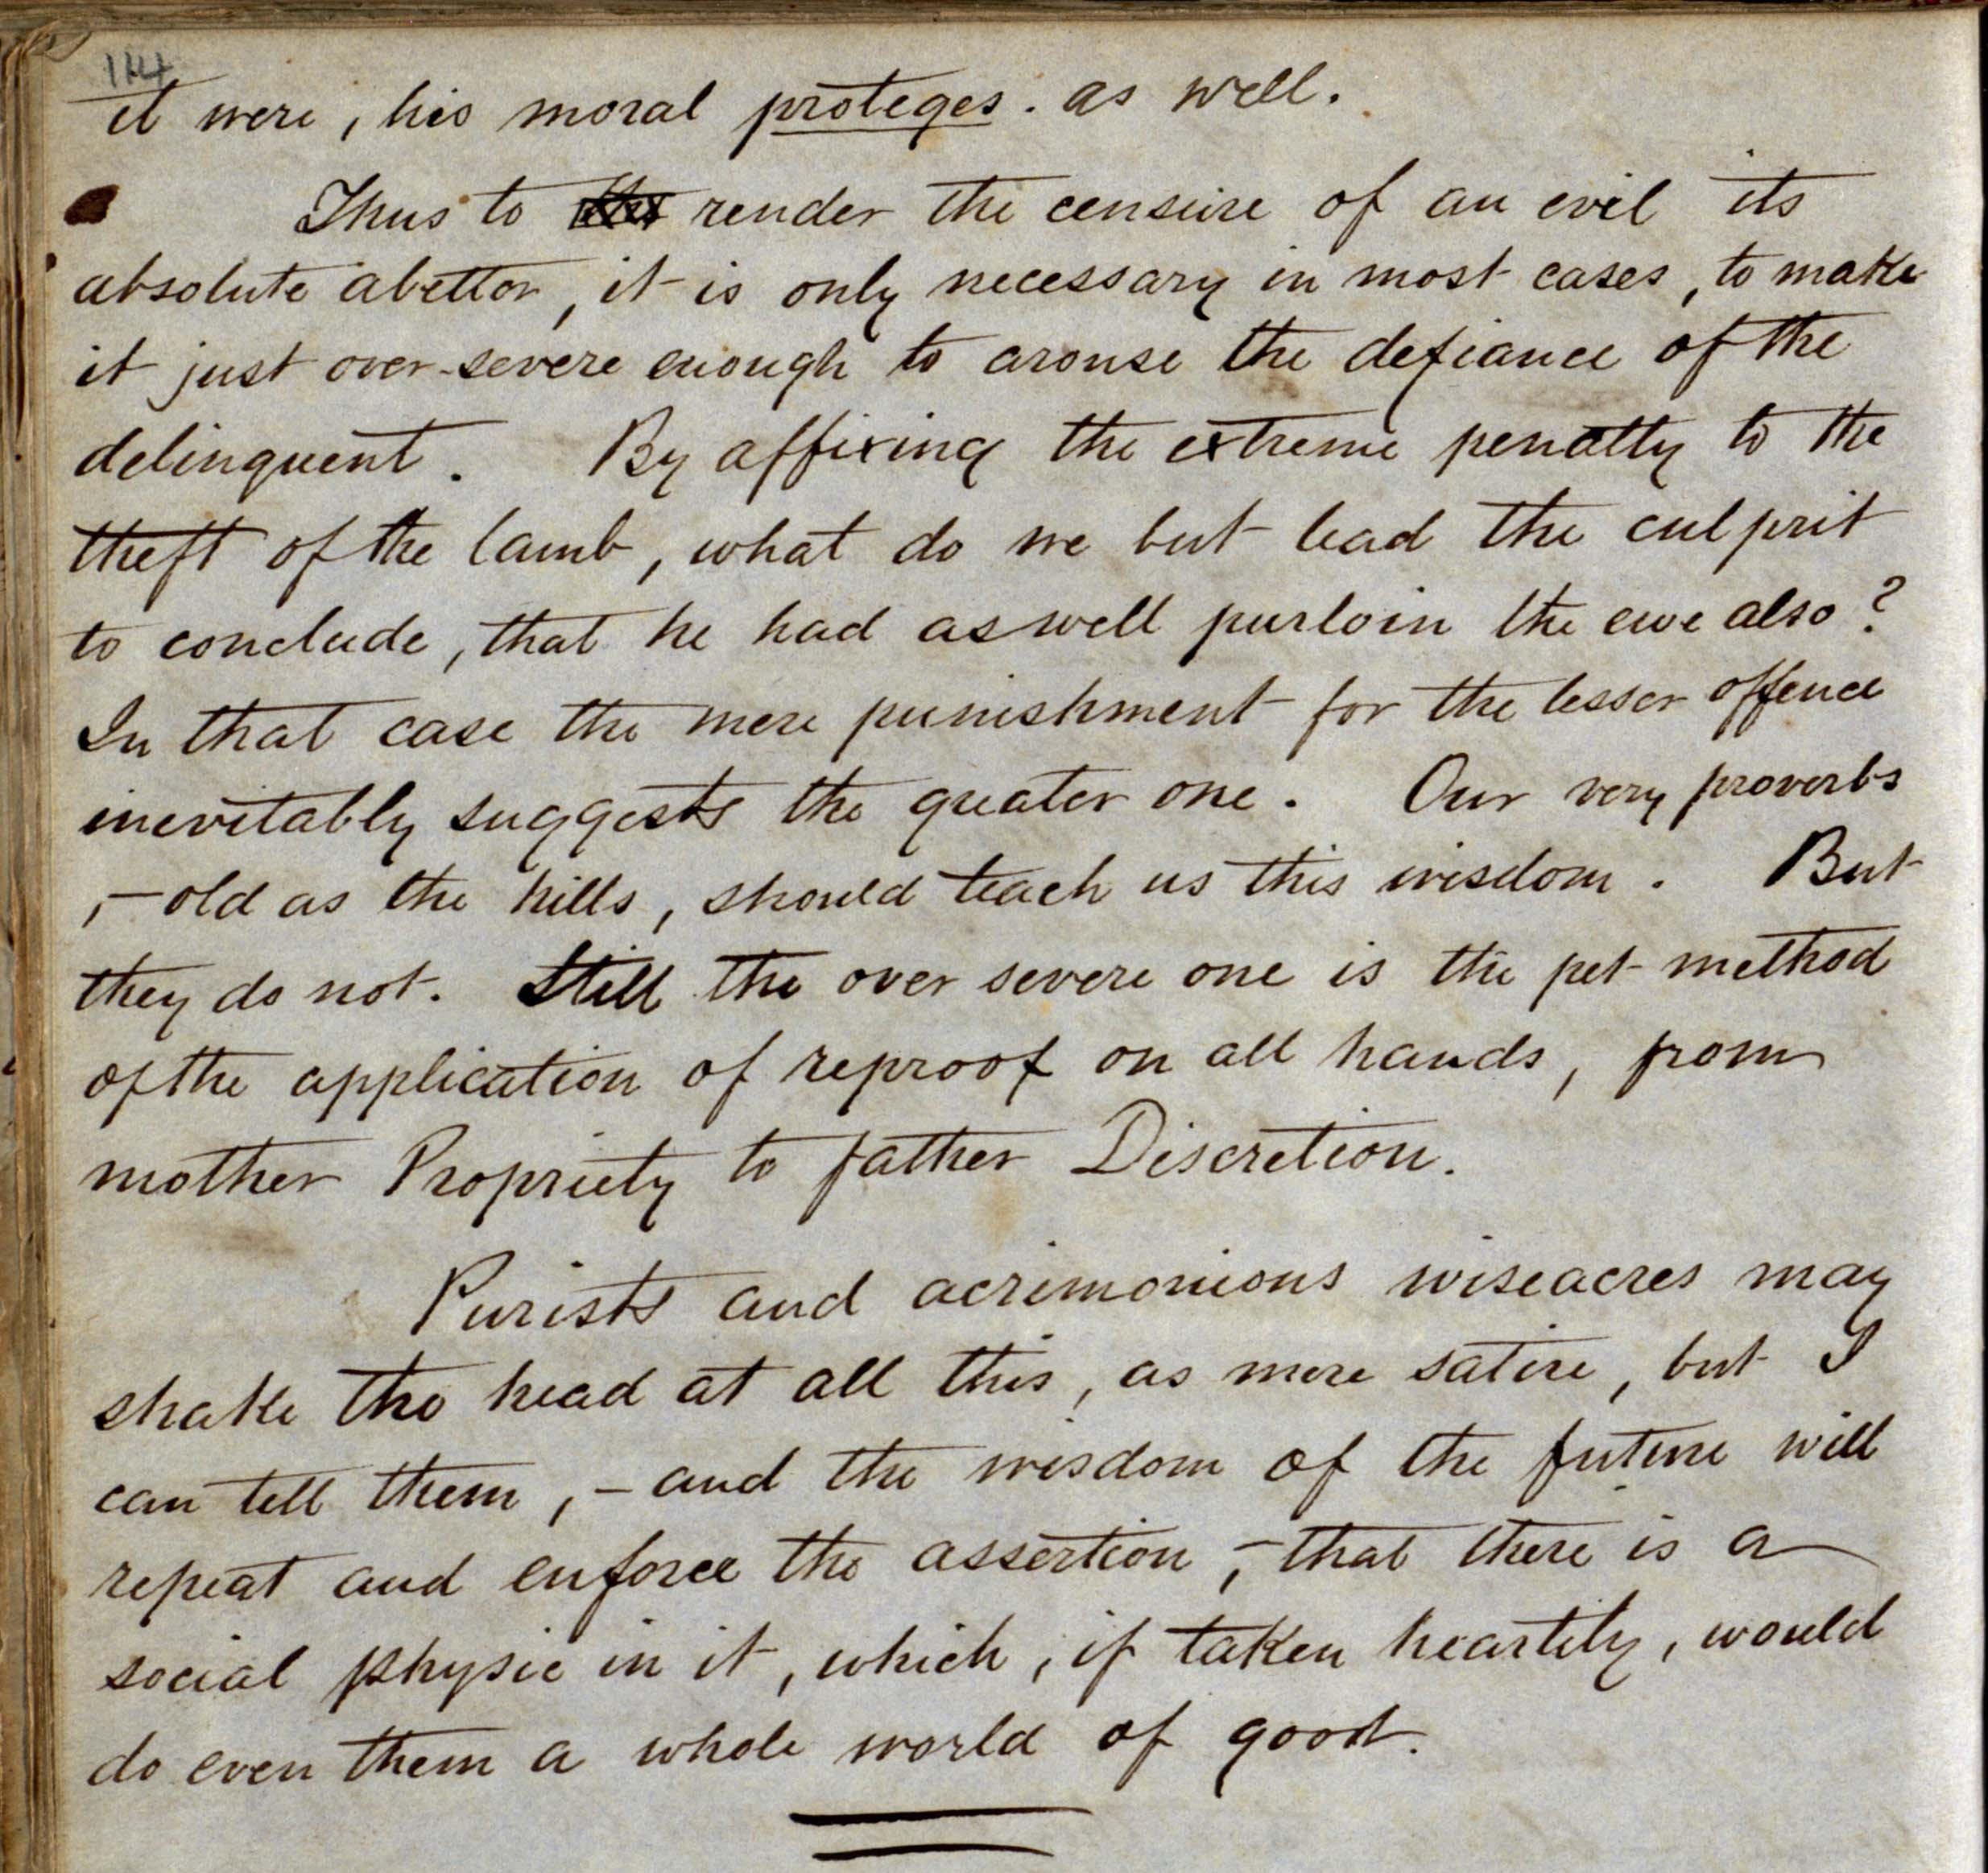 114
it were, his moral proteges. as well.
Thus to render the censure of an evil its
absolute abettor, it is only necessary in most cases, to make
it just over-severe enough to arouse the defiance of the
delinquent. By affixing the extreme penalty to the
theft of the lamb, what do we but lead the culprit
to conclude, that he had as well purloin the ewe also?
In that case the mere punishment for the lesser offence
inevitably suggests the greater one. Our very proverbs
,- old as the hills, should teach us this wisdom. But
they do not. Still the over severe one is the pet method
of the application of reproof on all hands, from
mother Propriety to father Discretion.
Purists and acrimonious wiseacres may
shake the head at all this, as mere satire, but I
can tell them,- and the wisdom of the future will
repeat and enforce the assertion,- that there is a
social physic in it, which, if taken heartily, would
do even them a whole world of good.